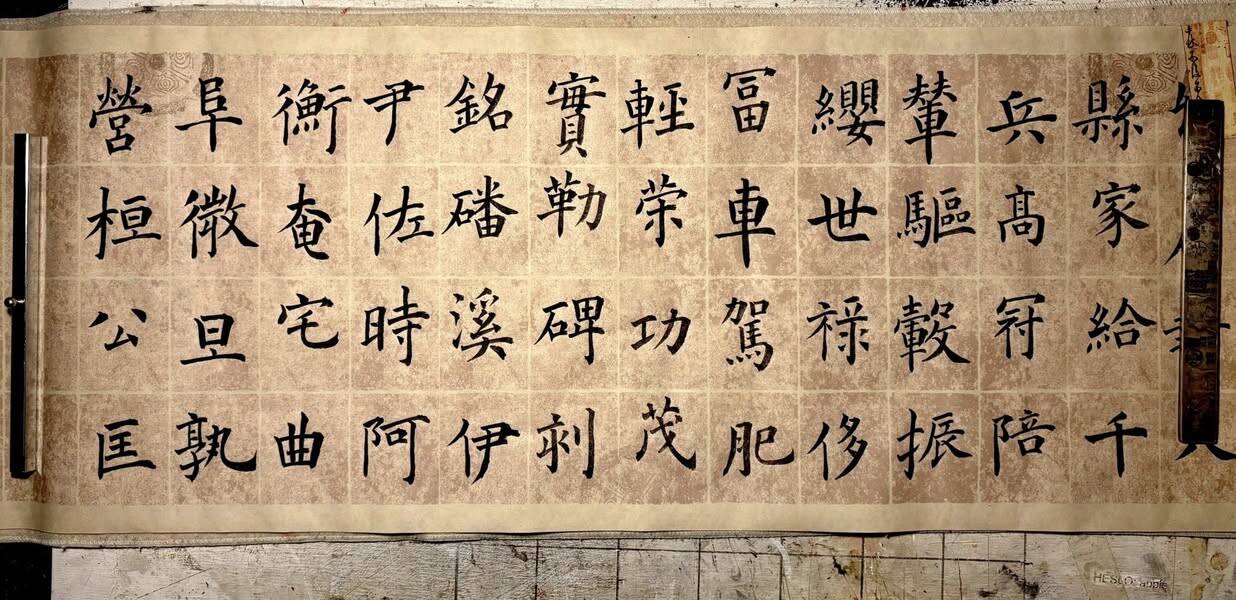 縣家給千
兵髙冠陪
輦驅轂振
纓世禄侈
冨車駕肥
輕荣功茂
實勒碑刻
銘磻溪伊
尹佐時阿
衡奄宅曲
阜微旦孰
營桓公匡
HESLO: apple